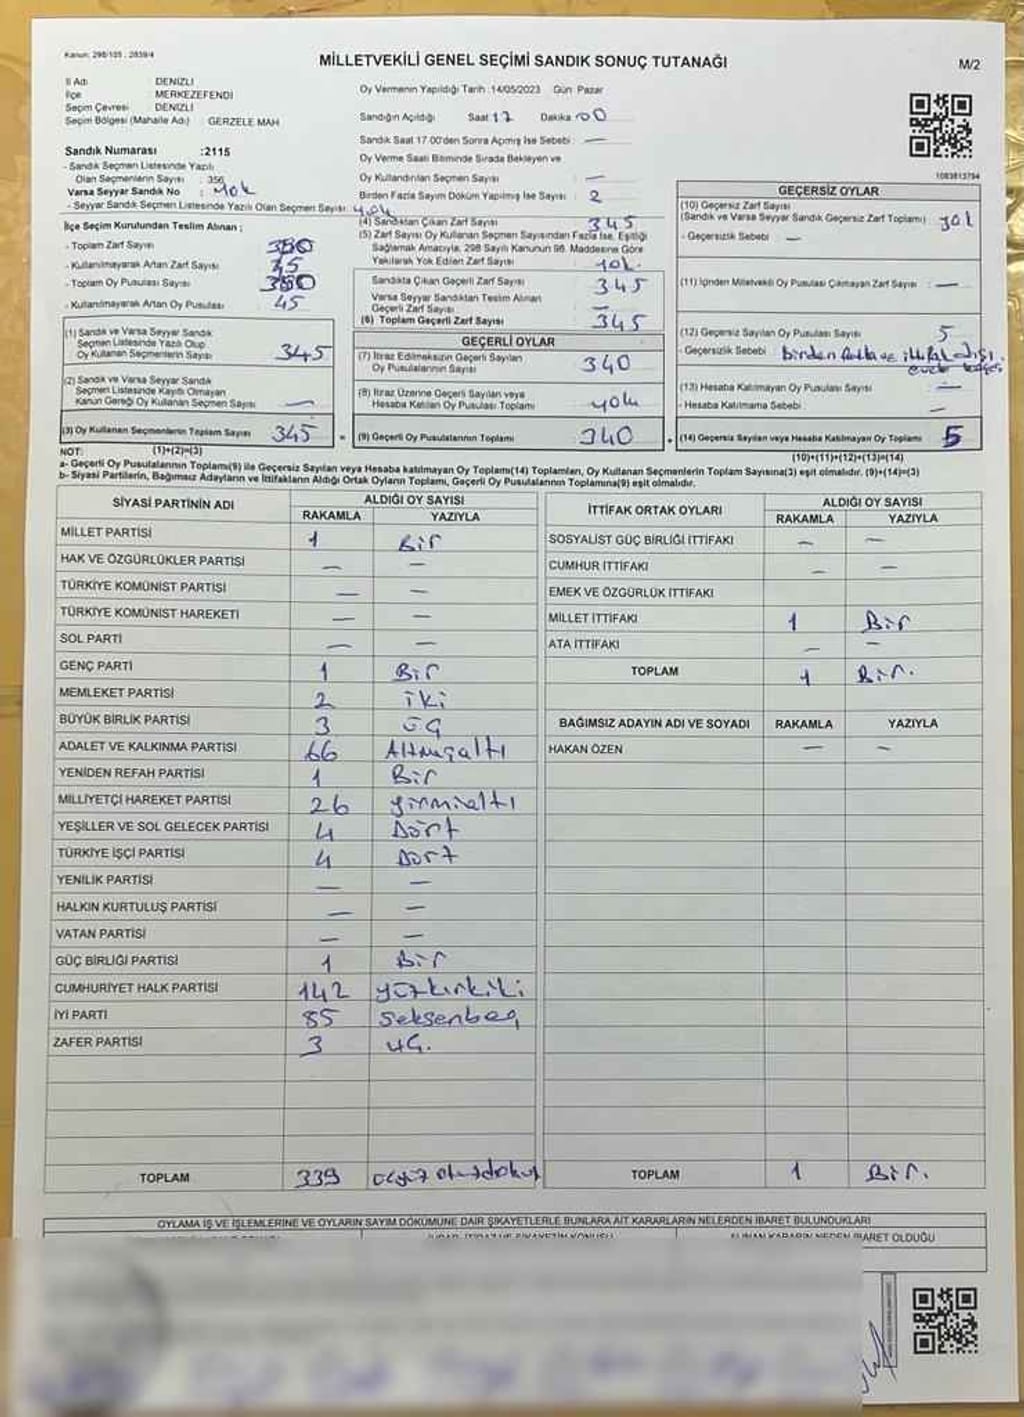 Kanun: 298/105 , 2839/4
MİLLETVEKİLİ GENEL SEÇİMİ SANDIK SONUÇ TUTANAĞI
M/2
İl Adı DENİZLİ
İlçe MERKEZEFENDİ
Seçim Çevresi DENİZLİ
Seçim Bölgesi (Mahalle Adı) GERZELE MAH
Oy Vermenin Yapıldığı Tarih :14/05/2023 Gün: Pazar
Sandığın Açıldığı Saat 17 Dakika 00
Sandık Saat 17.00'den Sonra Açılmış İse Sebebi : —
Oy Verme Saati Bitiminde Sırada Bekleyen ve
Oy Kullandırılan Seçmen Sayısı : —
Birden Fazla Sayım Döküm Yapılmış İse Sayısı : 2
1083813794
Sandık Numarası :2115
- Sandık Seçmen Listesinde Yazılı
Olan Seçmenlerin Sayısı : 356
Varsa Seyyar Sandık No : Yok
- Seyyar Sandık Seçmen Listesinde Yazılı Olan Seçmen Sayısı: Yok
İlçe Seçim Kurulundan Teslim Alınan ;
- Toplam Zarf Sayısı
- Kullanılmayarak Artan Zarf Sayısı
- Toplam Oy Pusulası Sayısı
- Kullanılmayarak Artan Oy Pusulası 45
(1) Sandık ve Varsa Seyyar Sandık
Seçmen Listesinde Yazılı Olup
Oy Kullanan Seçmenlerin Sayısı 345
(2) Sandık ve Varsa Seyyar Sandık
Seçmen Listesinde Kayıtlı Olmayan
Kanun Gereği Oy Kullanan Seçmen Sayısı —
(3) Oy Kullanan Seçmenlerin Toplam Sayısı 345
(4) Sandıktan Çıkan Zarf Sayısı 345
(5) Zarf Sayısı Oy Kullanan Seçmen Sayısından Fazla İse, Eşitliği
Sağlamak Amacıyla, 298 Sayılı Kanunun 98. Maddesine Göre
Yakılarak Yok Edilen Zarf Sayısı Yok
Sandıkta Çıkan Geçerli Zarf Sayısı 345
Varsa Seyyar Sandıktan Teslim Alınan
Geçerli Zarf Sayısı —
(6) Toplam Geçerli Zarf Sayısı 345
GEÇERLİ OYLAR
(7) İtiraz Edilmeksizin Geçerli Sayılan
Oy Pusulalarının Sayısı 340
(8) İtiraz Üzerine Geçerli Sayılan veya
Hesaba Katılan Oy Pusulası Toplamı yok
= (9) Geçerli Oy Pusulalarının Toplamı 340
GEÇERSİZ OYLAR
(10) Geçersiz Zarf Sayısı
(Sandık ve Varsa Seyyar Sandık Geçersiz Zarf Toplamı) yok
- Geçersizlik Sebebi —
(11) İçinden Milletvekili Oy Pusulası Çıkmayan Zarf Sayısı : —
(12) Geçersiz Sayılan Oy Pusulası Sayısı 5
- Geçersizlik Sebebi : birden fazla ve ittifak dışı
evet
(13) Hesaba Katılmayan Oy Pusulası Sayısı —
- Hesaba Katılmama Sebebi : —
(14) Geçersiz Sayılan veya Hesaba Katılmayan Oy Toplamı 5
NOT: (1)+(2)=(3) (10)+(11)+(12)+(13)=(14)
a- Geçerli Oy Pusulalarının Toplamı(9) ile Geçersiz Sayılan veya Hesaba katılmayan Oy Toplamı(14) Toplamları, Oy Kullanan Seçmenlerin Toplam Sayısına(3) eşit olmalıdır. (9)+(14)=(3)
b- Siyasi Partilerin, Bağımsız Adayların ve İttifakların Aldığı Ortak Oyların Toplamı, Geçerli Oy Pusulalarının Toplamına(9) eşit olmalıdır.
SİYASİ PARTİNİN ADI ALDIĞI OY SAYISI
RAKAMLA YAZIYLA
MİLLET PARTİSİ 1 Bir
HAK VE ÖZGÜRLÜKLER PARTİSİ — —
TÜRKİYE KOMÜNİST PARTİSİ — —
TÜRKİYE KOMÜNİST HAREKETİ — —
SOL PARTİ — —
GENÇ PARTİ 1 Bir
MEMLEKET PARTİSİ 2 iki
BÜYÜK BİRLİK PARTİSİ 3 üç
ADALET VE KALKINMA PARTİSİ 66 Altmışaltı
YENİDEN REFAH PARTİSİ 1 Bir
MİLLİYETÇİ HAREKET PARTİSİ 26 yirmialtı
YEŞİLLER VE SOL GELECEK PARTİSİ 4 Dört
TÜRKİYE İŞÇİ PARTİSİ 4 Dört
YENİLİK PARTİSİ — —
HALKIN KURTULUŞ PARTİSİ — —
VATAN PARTİSİ — —
GÜÇ BİRLİĞİ PARTİSİ 1 Bir
CUMHURİYET HALK PARTİSİ 142 yüzkırkiki
İYİ PARTİ 85 seksenbeş
ZAFER PARTİSİ 3 üç.
TOPLAM 339 üçyüz otuzdokuz
İTTİFAK ORTAK OYLARI ALDIĞI OY SAYISI
RAKAMLA YAZIYLA
SOSYALİST GÜÇ BİRLİĞİ İTTİFAKI — —
CUMHUR İTTİFAKI — —
EMEK VE ÖZGÜRLÜK İTTİFAKI
MİLLET İTTİFAKI 1 Bir
ATA İTTİFAKI — —
TOPLAM 1 Bir.
BAĞIMSIZ ADAYIN ADI VE SOYADI RAKAMLA YAZIYLA
HAKAN ÖZEN — —
TOPLAM 1 Bir.
OYLAMA İŞ VE İŞLEMLERİNE VE OYLARIN SAYIM DÖKÜMÜNE DAİR ŞİKAYETLERLE BUNLARA AİT KARARLARIN NELERDEN İBARET BULUNDUKLARI